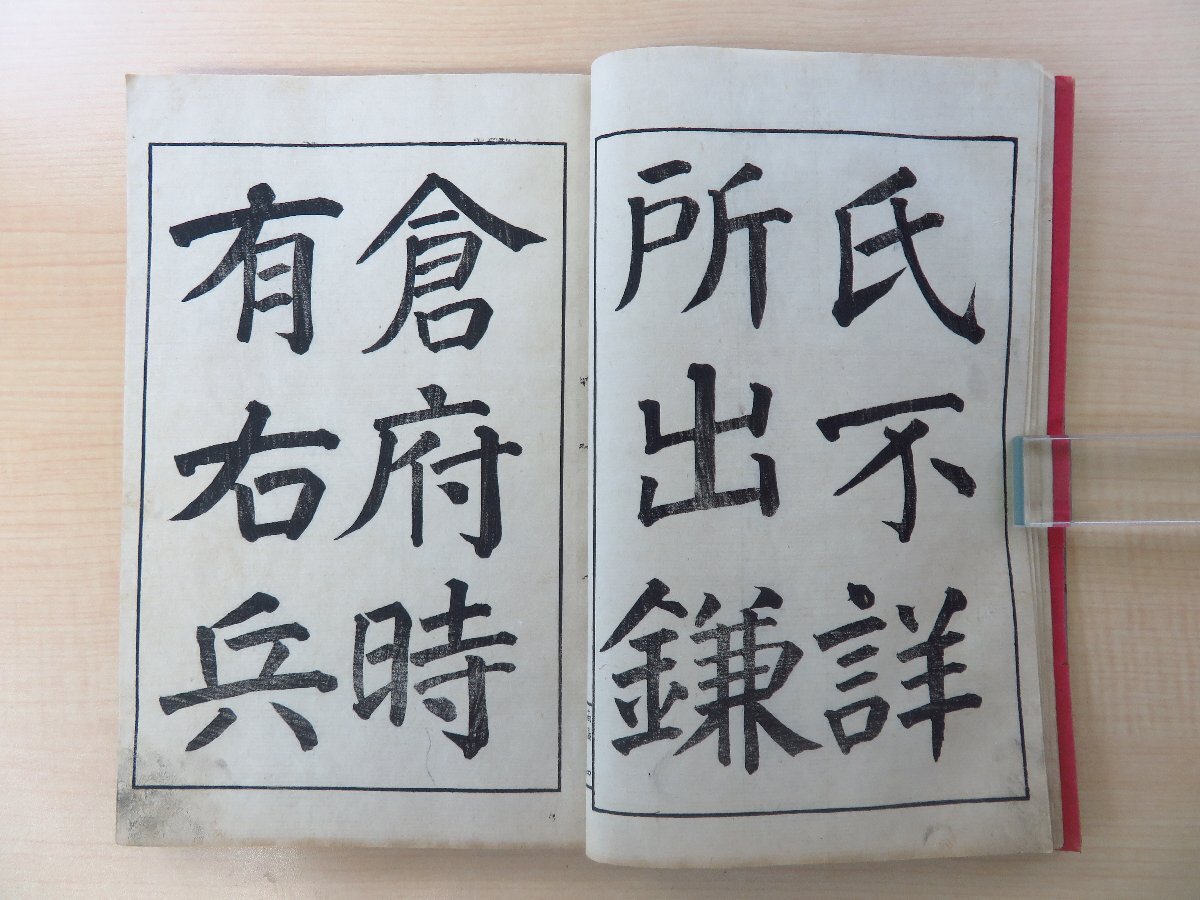 氏不詳
所出鎌
倉府時
有右兵